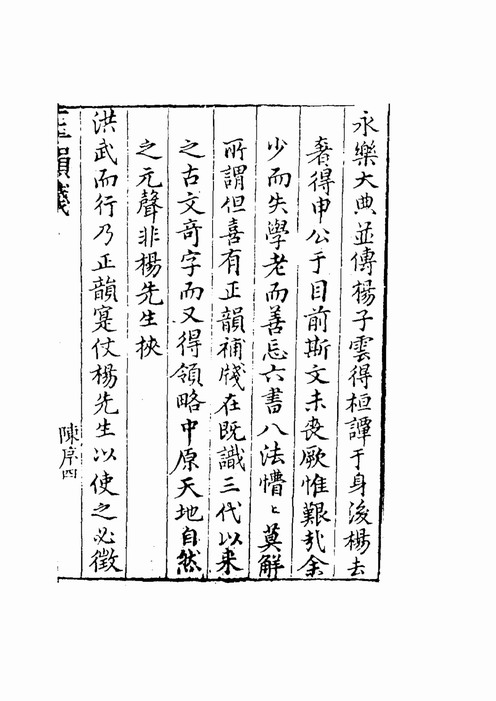 永樂大典並傳楊子雲得桓譚于身後楊去
奢得申公于目前斯文未喪厥惟艱㢤余
少而失學老而善忘六書八法懵〻莫解
所謂但喜有正韻補牋在既識三代以来
之古文竒字而又得領略中原天地自然
之元聲非楊先生挾
洪武而行乃正韻寔仗楊先生以使之必徵
陳序四
正韻牋